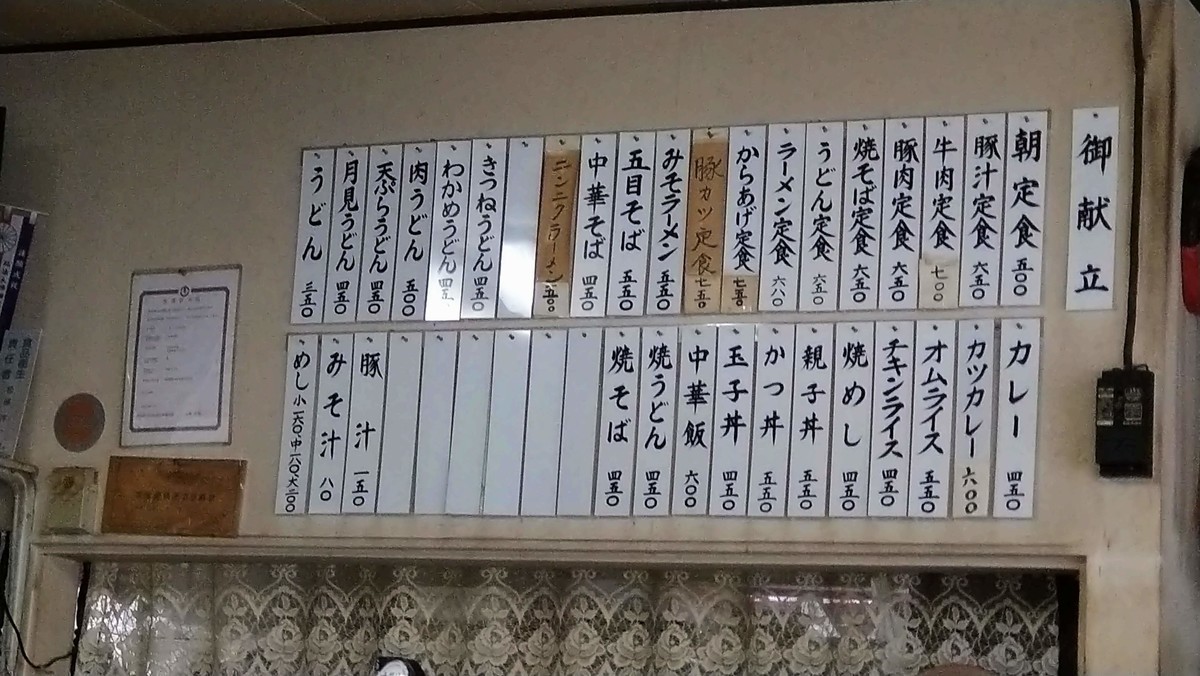 御献立
朝定食 五〇〇
豚汁定食 六五〇
牛肉定食 七〇〇
豚肉定食 六五〇
焼そば定食 六五〇
うどん定食 六五〇
ラーメン定食 六八〇
からあげ定食 七五〇
豚カツ定食 七五〇
みそラーメン 五五〇
五目そば 五五〇
中華そば 四五〇
ニンニクラーメン 五〇〇
きつねうどん 四五〇
わかめうどん 四五〇
肉うどん 五〇〇
天ぷらうどん 四五〇
月見うどん 四五〇
うどん 三五〇
カレー 四五〇
カツカレー 六〇〇
オムライス 五五〇
チキンライス 四五〇
焼めし 四五〇
親子丼 五五〇
かつ丼 五五〇
玉子丼 四五〇
中華飯 六〇〇
焼うどん 四五〇
焼そば 四五〇
豚汁 一五〇
みそ汁 八〇
めし小一六〇、中一八〇、大二〇〇
食品衛生
責任者